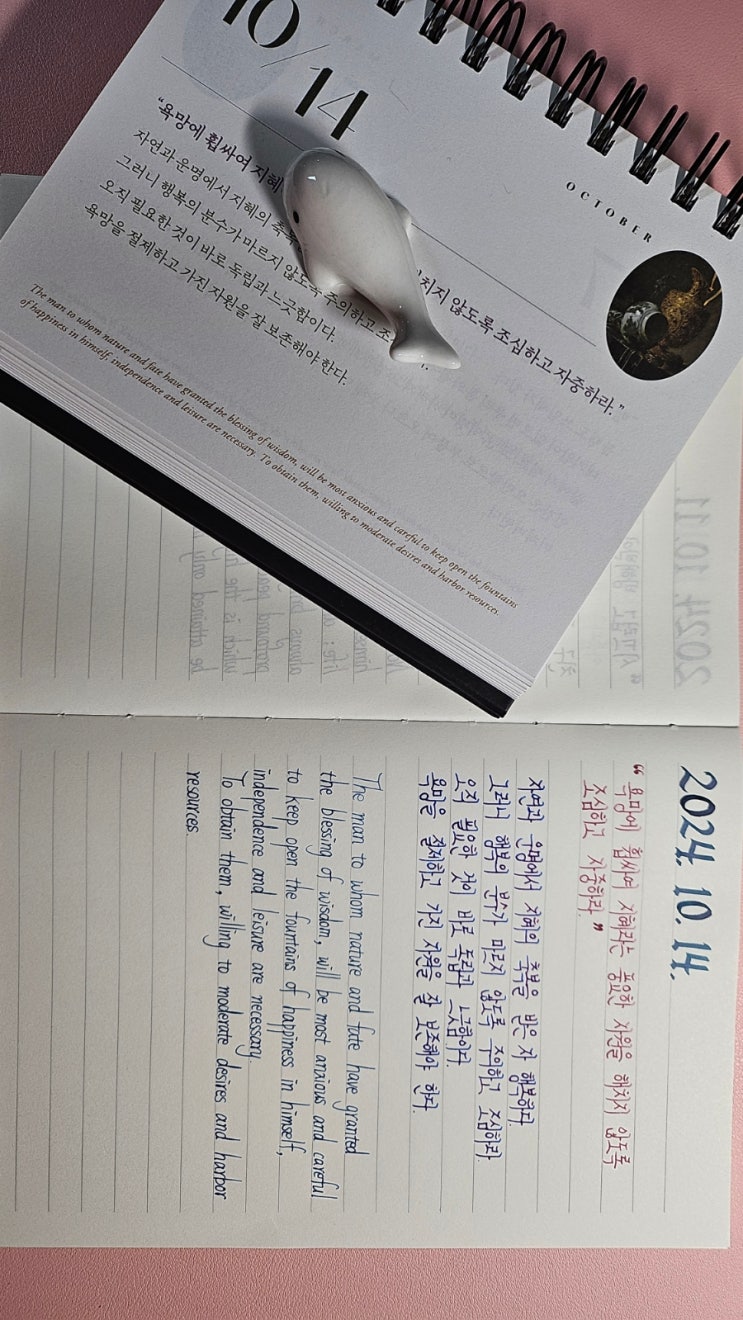 10/14
OCTOBER
"욕망에 휩싸여 지혜 해치지 않도록 조심하고 자중하라."
자연과 운명에서 지혜의 축복
그러니 행복의 분수가 마르지 않도록 주의하고 조
오직 필요한 것이 바로 독립과 느긋함이다.
욕망을 절제하고 가진 자원을 잘 보존해야 한다.
The man to whom nature and fate have granted the blessing of wisdom, will be most anxious and careful to keep open the fountains
of happiness in himself, independence and leisure are necessary. To obtain them, willing to moderate desires and harbor resources.
2024. 10. 11
2024. 10. 14.
"욕망에 휩싸여 지혜라는 중요한 자원을 해치지 않도록
조심하고 자중하라."
자연과 운명에서 지혜의 축복을 받은 자 행복하다.
그러니 행복의 분수가 마르지 않도록 주의하고 조심하라.
오직 필요한 것이 바로 독립과 느긋함이다.
욕망을 절제하고 가진 자원을 잘 보존해야 한다.
The man to whom nature and fate have granted
the blessing of wisdom, will be most anxious and careful
to keep open the fountains of happiness in himself,
independence and leisure are necessary.
To obtain them, willing to moderate desires and harbor
resources.